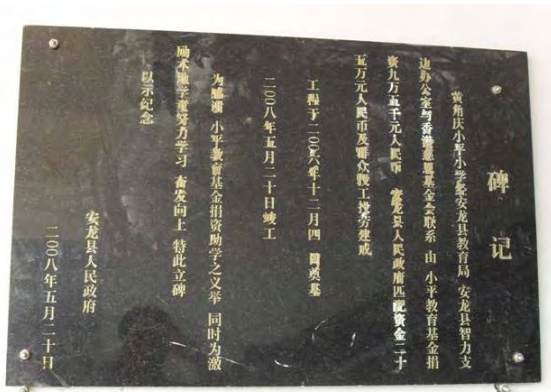 碑记
黄角庆小平小学经安龙县教育局 安龙县智力支
边办公室与香港慈恩基金会联系 由 小平教育基金捐
资九万五千元人民币 安龙县人民政府匹配资金二十
五万元人民币及群众投工投劳建成
工程于二00六年十二月四 日奠基
二00八年五月二十日竣工
为感谢 小平教育基金捐资助学之义举 同时为激
励本地学童努力学习 奋发向上 特此立碑
以示纪念
安龙县人民政府
二00八年五月二十日